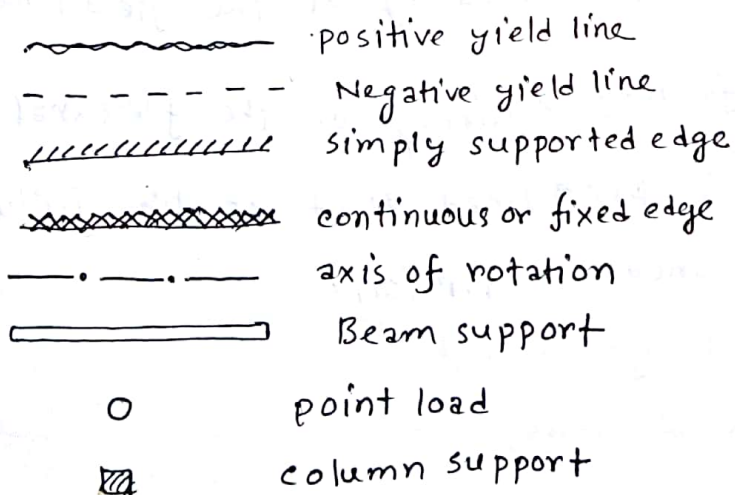 positive yield line
Negative yield line
simply supported edge
continuous or fixed edge
axis of rotation
Beam support
point load
column support